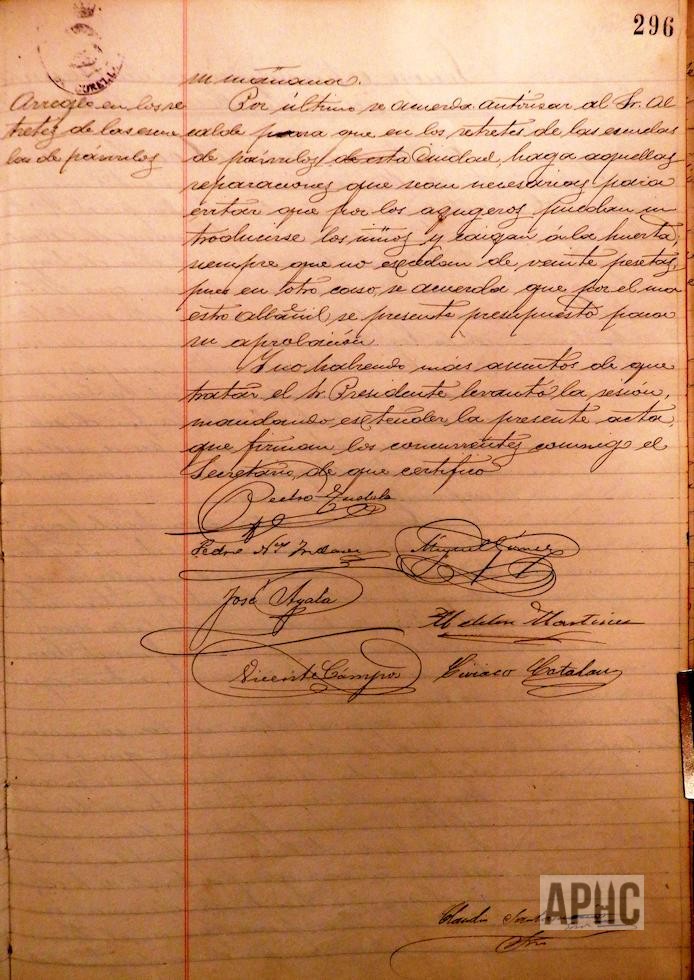 296
CORELLA
mañana.
Arreglo en los re
tretes de las escue
las de párvulos
Por último se acuerda autorizar al Sr. Al
calde para que en los retretes de las escuelas
de párvulos de esta Ciudad, haga aquellas
reparaciones que sean necesarias para
evitar que por los agugeros puedan in
troducirse los niños y caigan á la huerta,
siempre que no escedan de veinte pesetas,
pues en otro caso, se acuerda que por el ma
estro albañil, se presente presupuesto para
su aprobación.
Y no habiendo más asuntos de que
tratar el Sr. Presidente levantó la sesión,
mandando estender la presente acta
que firman los concurrentes conmigo el
Secretario, de que certifico
Pedro Tudela
Pedro
Miguel Gómez
José Ayala
Martínez
Vicente Campos
Ciriaco Catalan
Claudio
APHC